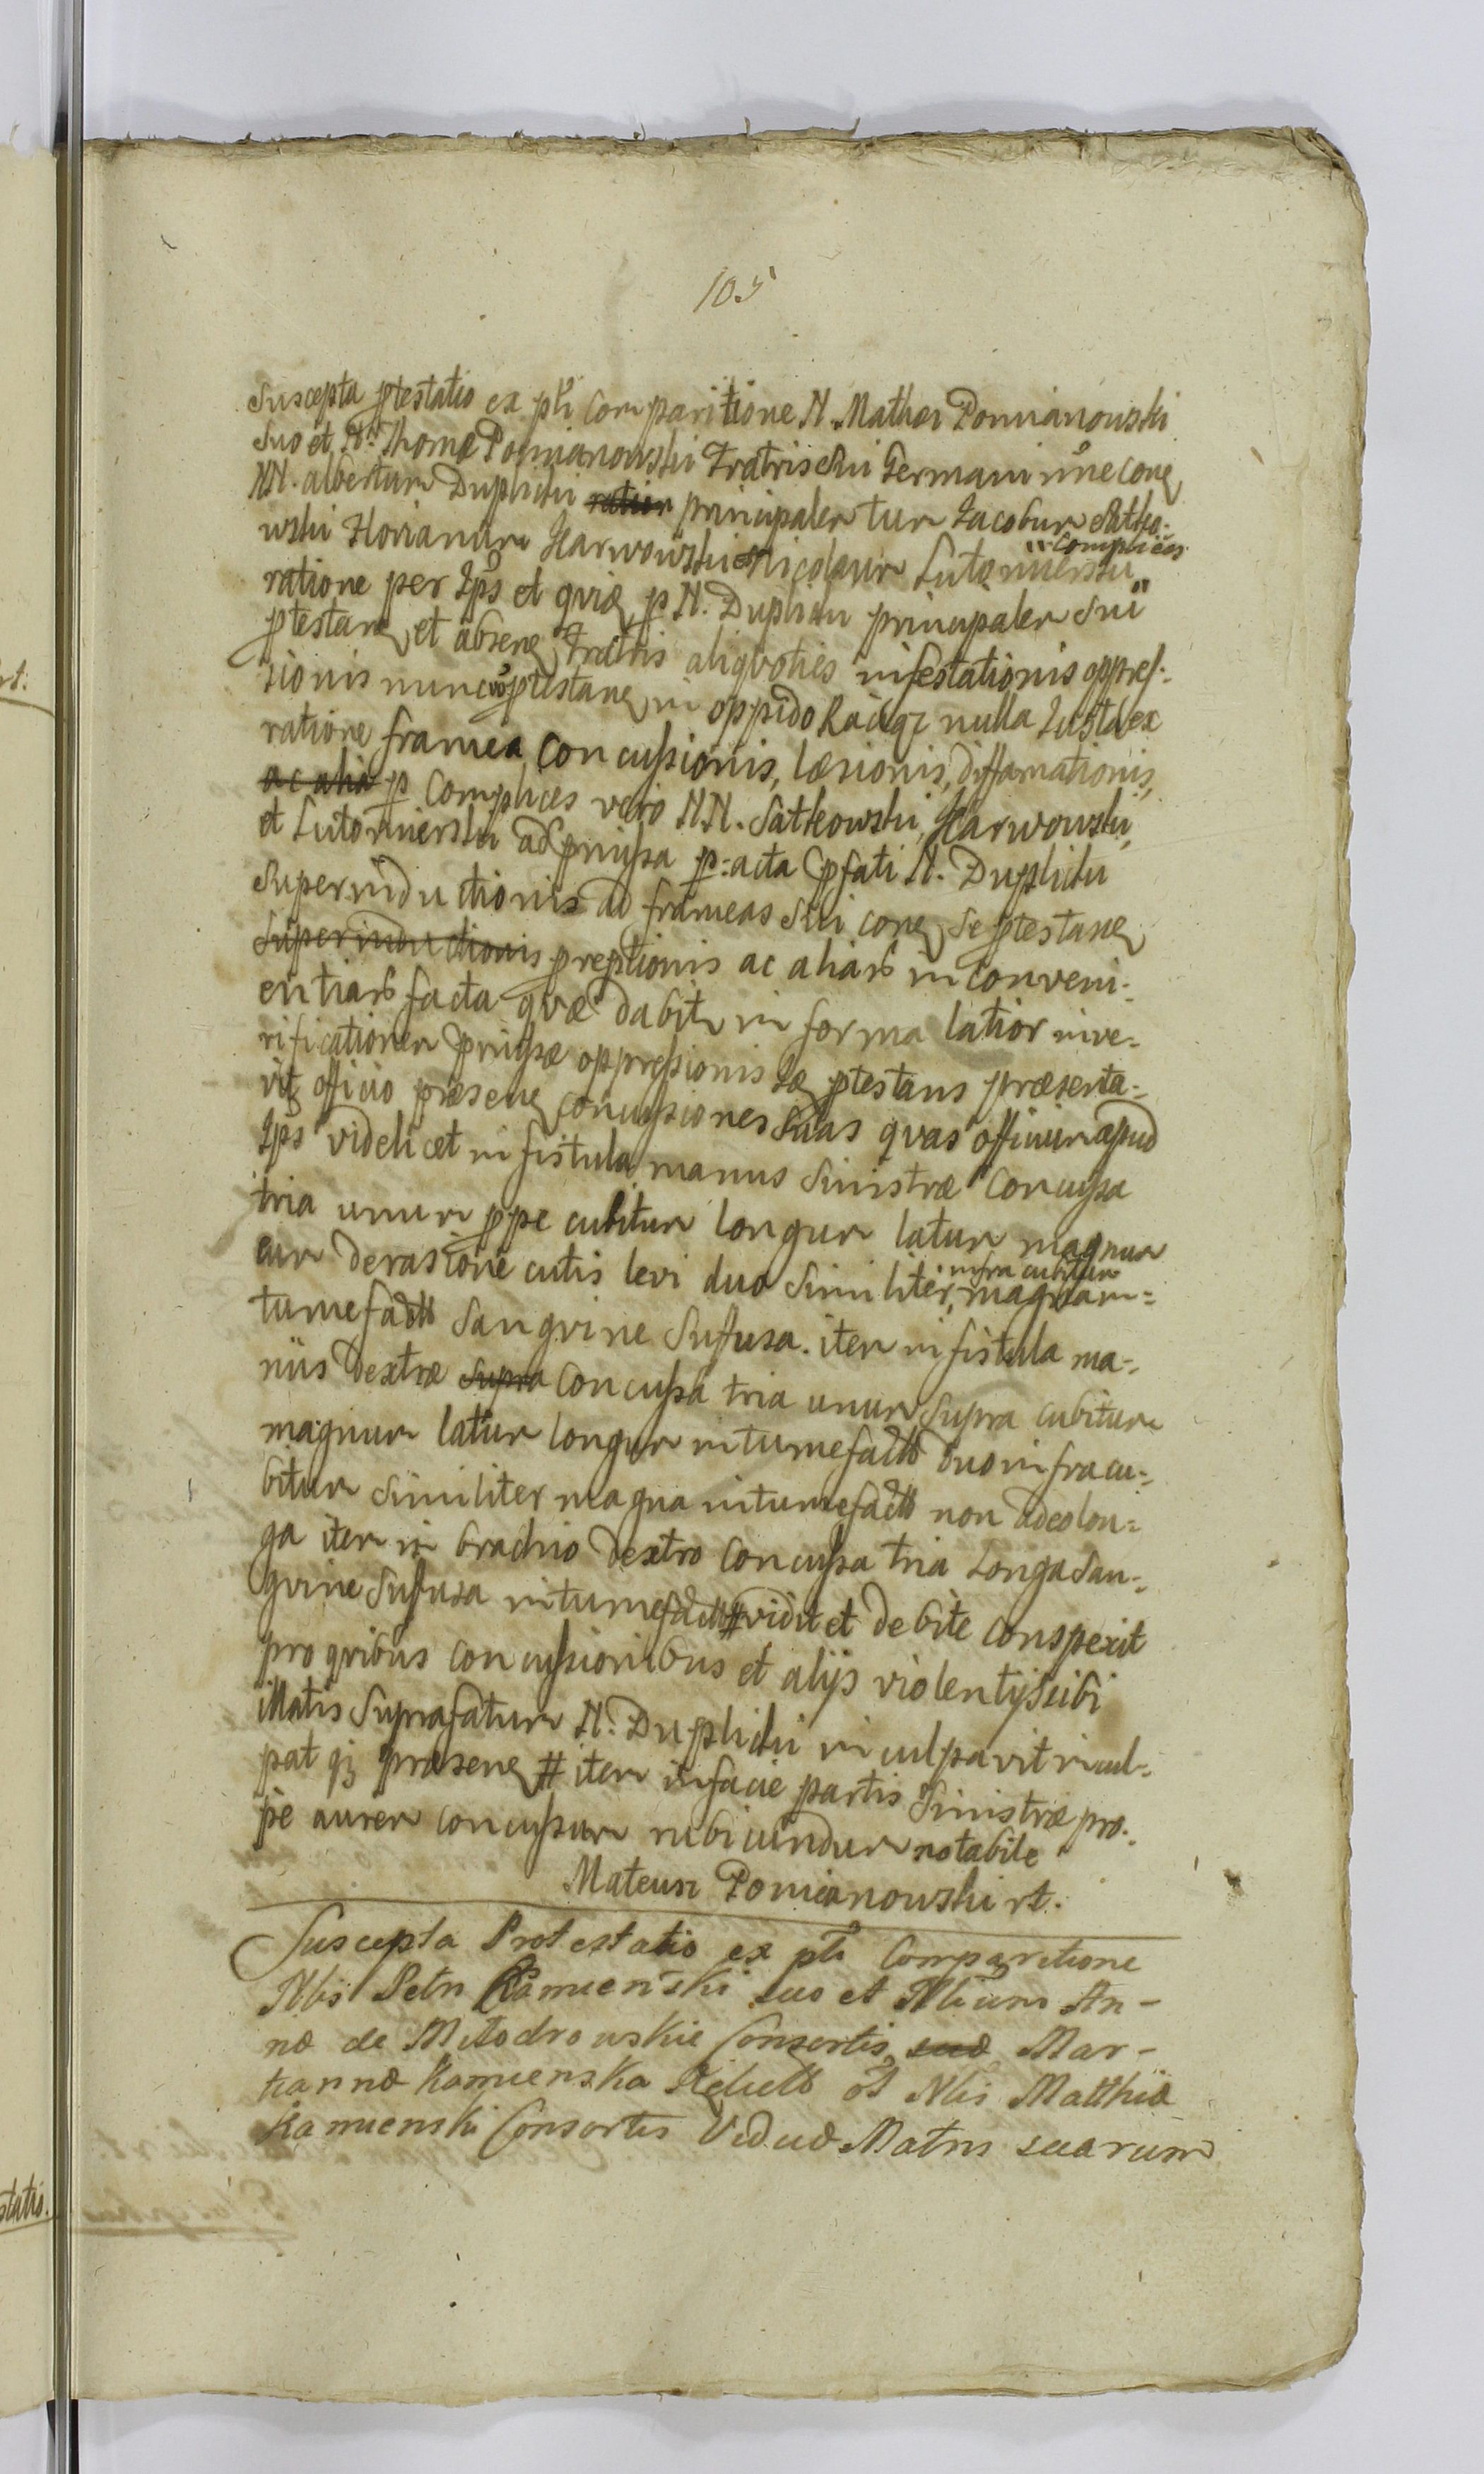 105
Suscepta ptestatio ex pti comparitione N. Mathei Pomianowski
suo et N. Thomæ Pomianowski Fratris Sui Germani nne cone
NN. albertum Duplicki ratior principalem tum Jacobum Satko-
wski Florianum Karwowski et Nicolaum Lutomierski "complices
ratione per Ips et quia p N. Duplicki principalem Sui"
ptestane et absene Fratris aliquoties infestationis oppres-
sionis nunc vo ptestane in oppido Raigr nulla Justa ex
ratione framea concussionis, læsionis, diffamationis,
ac alia p complices vero N.N. Satkowski, Karwowski,
et Lutomierski ad pmissa p: acta pfati N. Duplicki
Superinductionis ad frameas Sui cone Se ptestane
Superinductionis preptionis ac aliarb inconveni-
entiarb facta quæ dabitr in forma latiori inve-
rificationem pmissæ oppressionis Læ ptestans præsenta-
vit officio præsene concussiones Suas quas officium apud
Ips videlicet in fistula manus Sinistræ concussa
tria unum ppe cubitum longum latum magnum
cum derasione cutis levi duo Similiter, infra cubitum magna in-
tumefacta Sangvine Suffusa. item in fistula ma-
nus dextræ supra concussa tria unum Supra cubitum
magnum latum longum intumefactb duo infra cu-
bitum Similiter magna intumefactb non adeo lon-
ga item in brachio dextro concussa tria Longa San-
gvine Suffusa intumefactb # vidit et debite conspexit
pro quibus concussionibus et alijs violentijs sibi
illatis Suprafatum N. Duplicki inculpavit incul-
pat q3 præsene # item in facie partis Sinistræ pro-
pe aurem concussum rubicundum notabile
Mateusz Pomianowski rt.
Suscepta Protestatio ex pti Comparitione
Nbis Petri Kamienski suo et Nbium An-
næ de Mitodrowskie Consortis, suæ Mar-
tiannæ Kamienska Relictb ot Nbis Matthiæ
Kamienski Consortis Viduæ Matris suarum